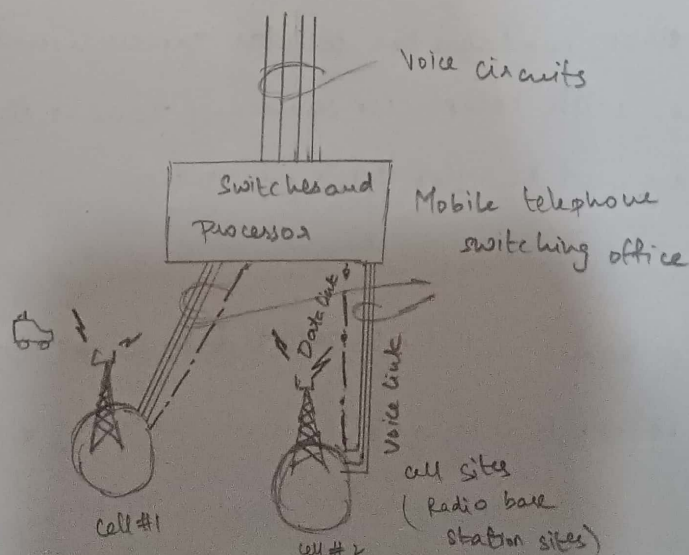 Voice circuits
Switches and
Processor
Mobile telephone
switching office
Data link
Voice link
cell sites
(Radio base
station sites)
Cell #1
Cell #2